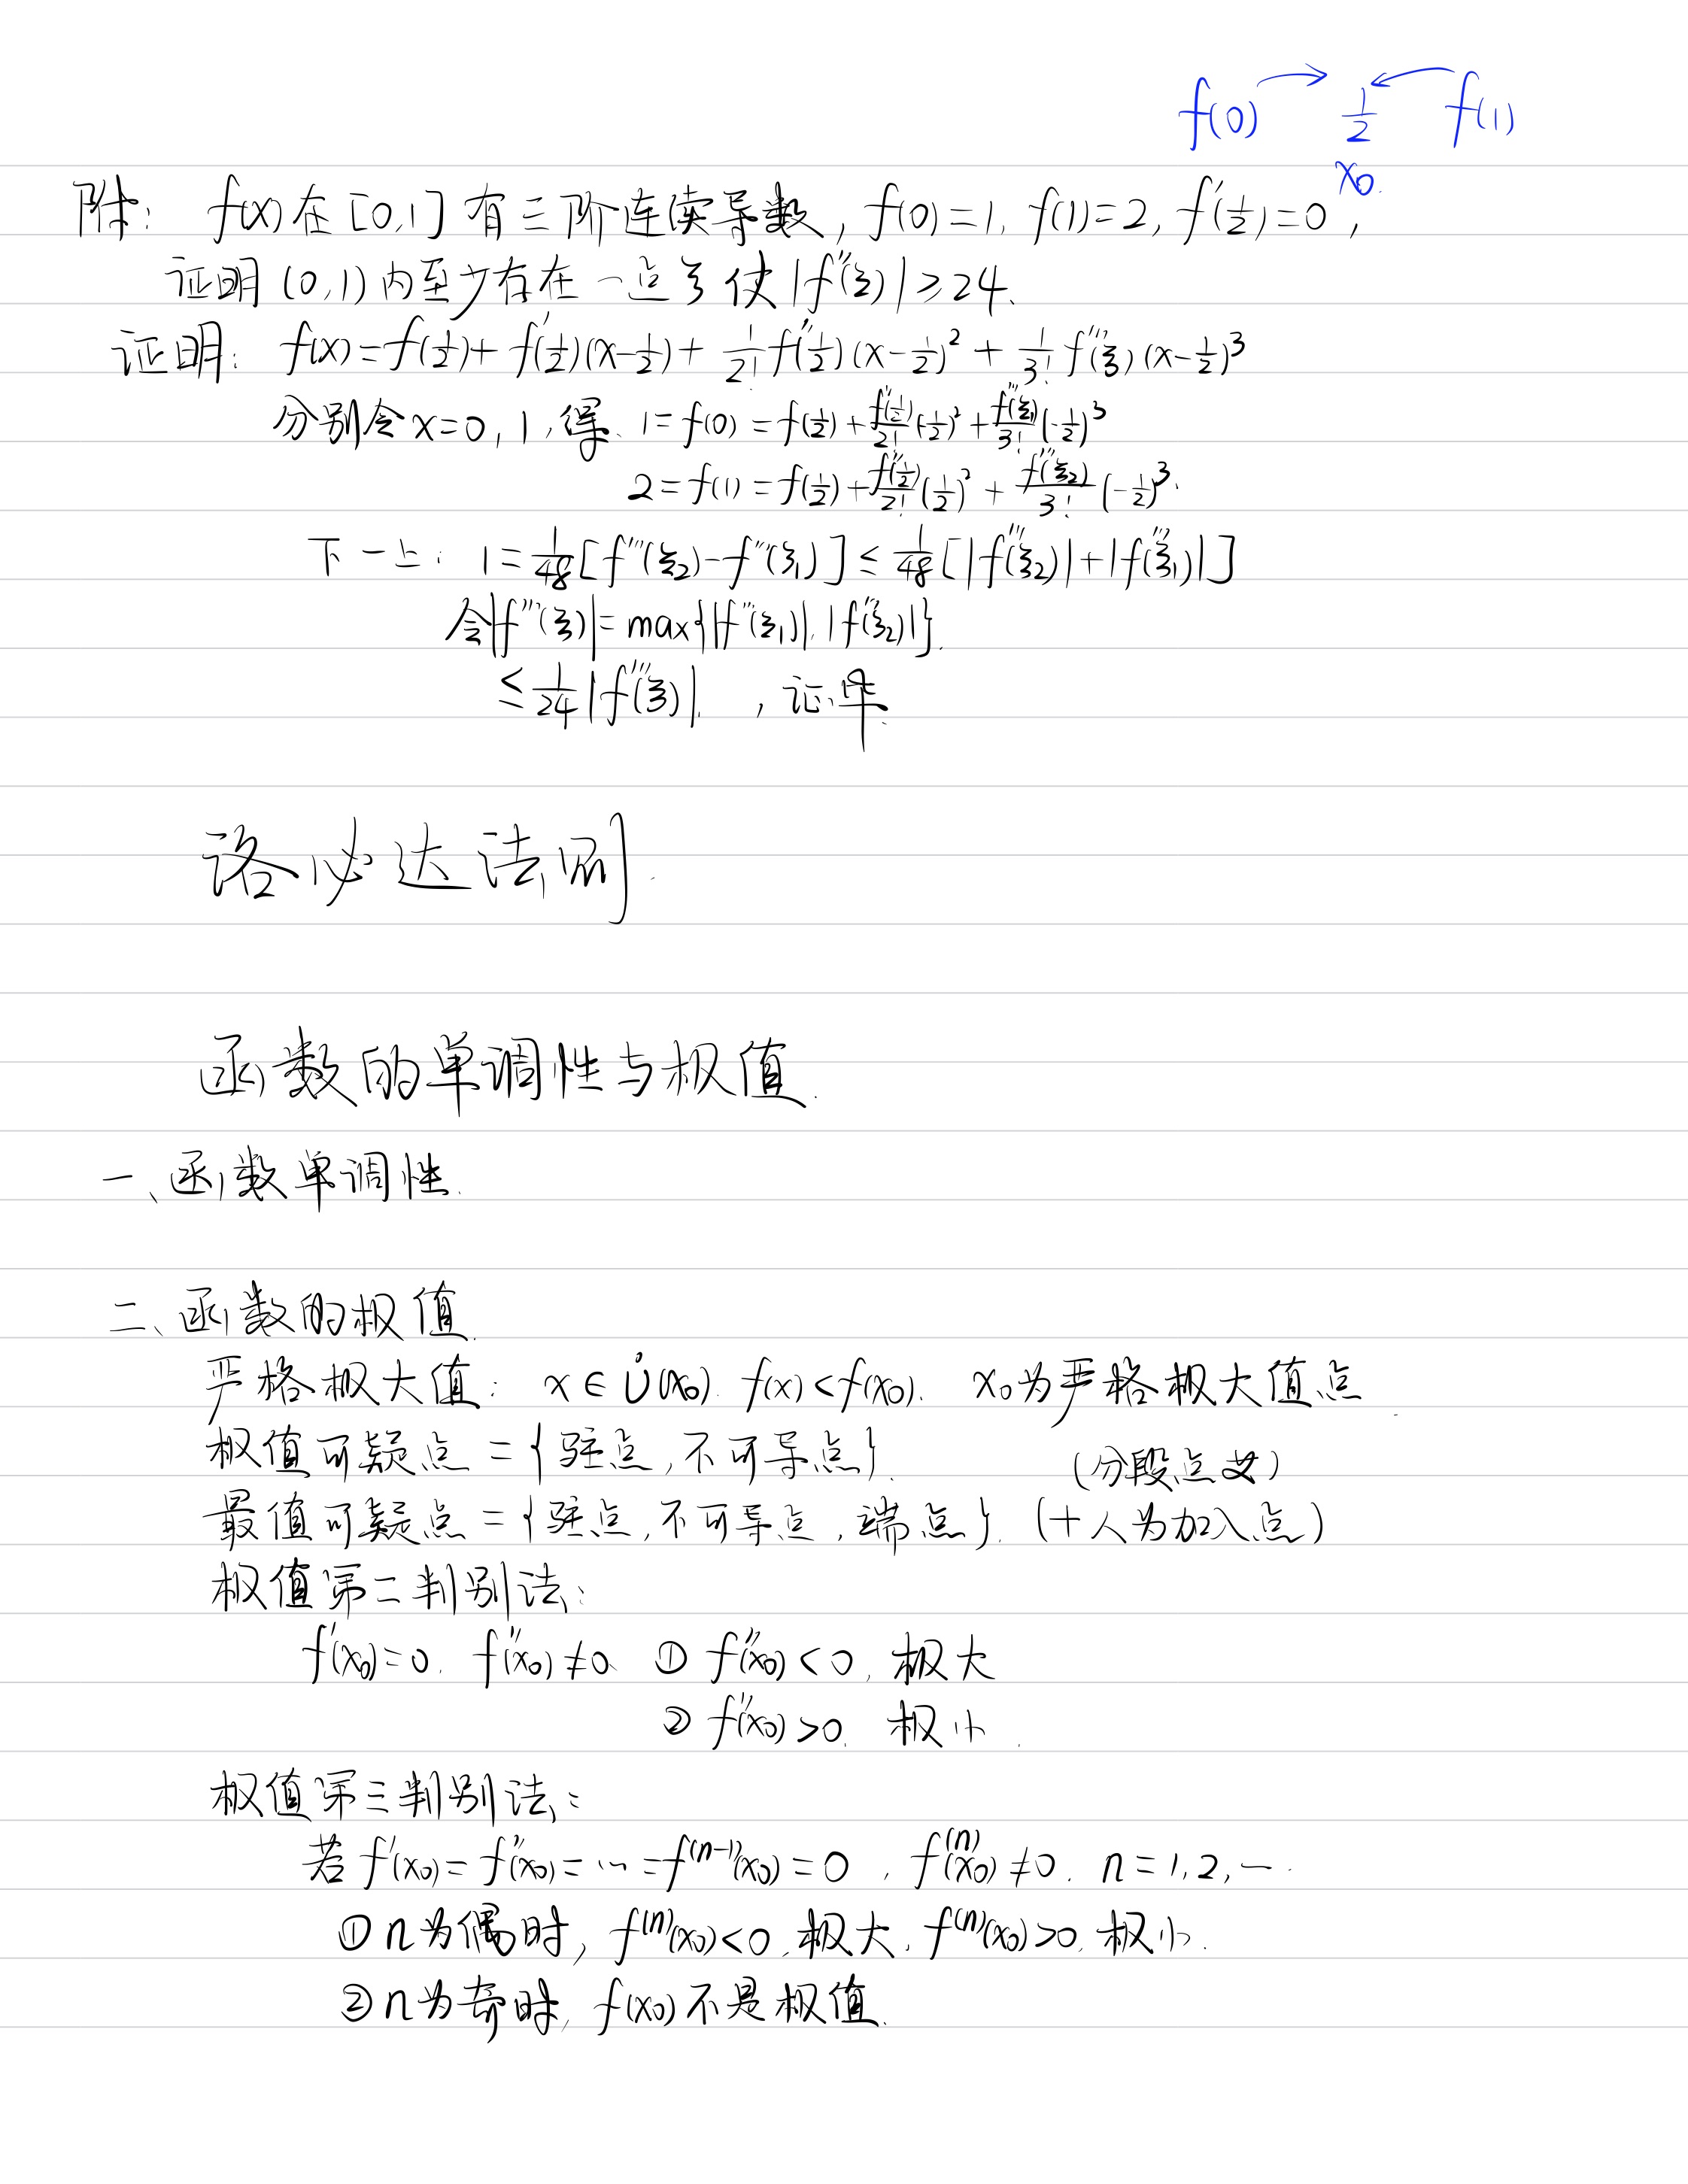 f(0) → 1/2 ← f(1)
x₀
附: f(x)在[0,1]有三阶连续导数, f(0)=1, f(1)=2, f'(1/2)=0,
证明(0,1)内至少存在一点ξ使|f'''(ξ)|≥24.
证明: f(x)=f(1/2)+f'(1/2)(x-1/2)+1/2! f''(1/2)(x-1/2)²+1/3! f'''(ξ)(x-1/2)³
分别令x=0,1,得. 1=f(0)=f(1/2)+f''(1/2)/2!(-1/2)²+f'''(ξ₁)/3!(-1/2)³
2=f(1)=f(1/2)+f''(1/2)/2!(1/2)²+f'''(ξ₂)/3!(-1/2)³.
下-上: 1=1/48[f'''(ξ₂)-f'''(ξ₁)]≤1/48[|f'''(ξ₂)|+|f'''(ξ₁)|]
令|f'''(ξ)|=max{|f'''(ξ₁)|,|f'''(ξ₂)|}.
≤1/24|f'''(ξ)|. ,证毕.
洛必达法则.
函数的单调性与极值.
一、函数单调性.
二、函数的极值.
严格极大值: x∈Ů(x₀). f(x)<f(x₀). x₀为严格极大值点.
极值可疑点={驻点,不可导点}. (分段点等)
最值可疑点={驻点,不可导点,端点}. (+人为加入点)
极值第二判别法:
f'(x₀)=0. f''(x₀)≠0. ① f''(x₀)<0, 极大
② f''(x₀)>0. 极小.
极值第三判别法:
若f'(x₀)=f''(x₀)=…=f⁽ⁿ⁻¹⁾(x₀)=0, f⁽ⁿ⁾(x₀)≠0. n=1,2,….
①n为偶时, f⁽ⁿ⁾(x₀)<0,极大, f⁽ⁿ⁾(x₀)>0,极小.
②n为奇时, f(x₀)不是极值.